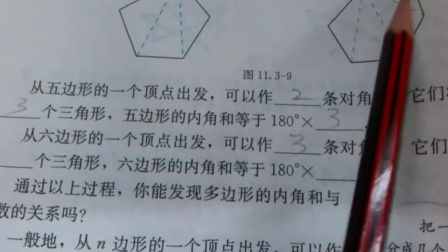 图 11.3-9
从五边形的一个顶点出发，可以作 2 条对角 它们
3 个三角形，五边形的内角和等于 180°× 3
从六边形的一个顶点出发，可以作 3 条对角 它们
个三角形，六边形的内角和等于 180°×
通过以上过程，你能发现多边形的内角和与
数的关系吗？
把一
一般地，从 n 边形的一个顶点出发，可以作
分成几个